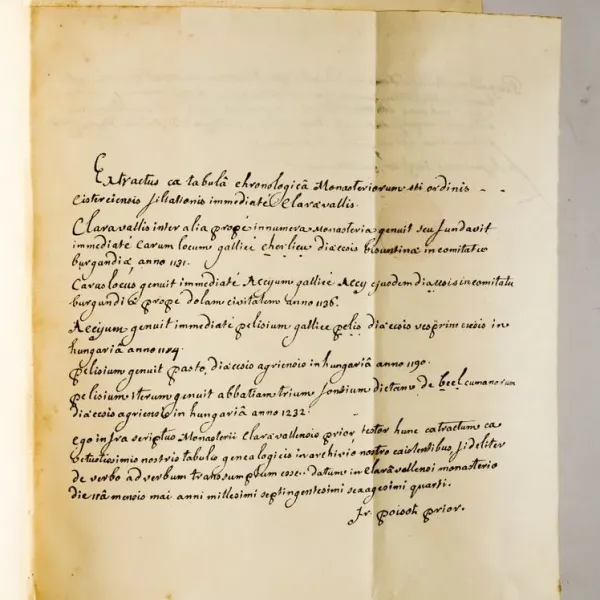 Extractus ex tabulâ chronologicâ Monasteriorum sti ordinis - -
Cisterciensis filiationis immediaté Claravallis.
Claravallis inter alia propé innumera Monasteria genuit seu fundavit
immediaté Carum locum gallicé cherlieu diœcesis bisuntinæ in comitatu
burgundiæ anno 1131.
Carus locus genuit immediaté Acceyum gallicé Accey ejusdem diœcesis in comitatu
burgundiæ propé dolam civitatem anno 1136.
Acceyum genuit immediaté pelisium gallicé pelis diœcesis vesprimensis in
hungariâ anno 1184.
pelisium genuit pasto, diœcesis agriensis in hungariâ anno 1190.
pelisium iterum genuit abbatiam trium fontium dictam de beel cumanorum
diœcesis agriensis in hungariâ anno 1232.
ego infra scriptus Monasterii Claravallensis prior testor hunc extractum ex
vetustissimis nostris tabulis genealogicis in archivio nostro existentibus fideliter
de verbo ad verbum transumptum esse. datum in Claravallensi monasterio
die 11â mensis mai anni millesimi septingentesimi sexagesimi quarti.
fr. poisot prior.